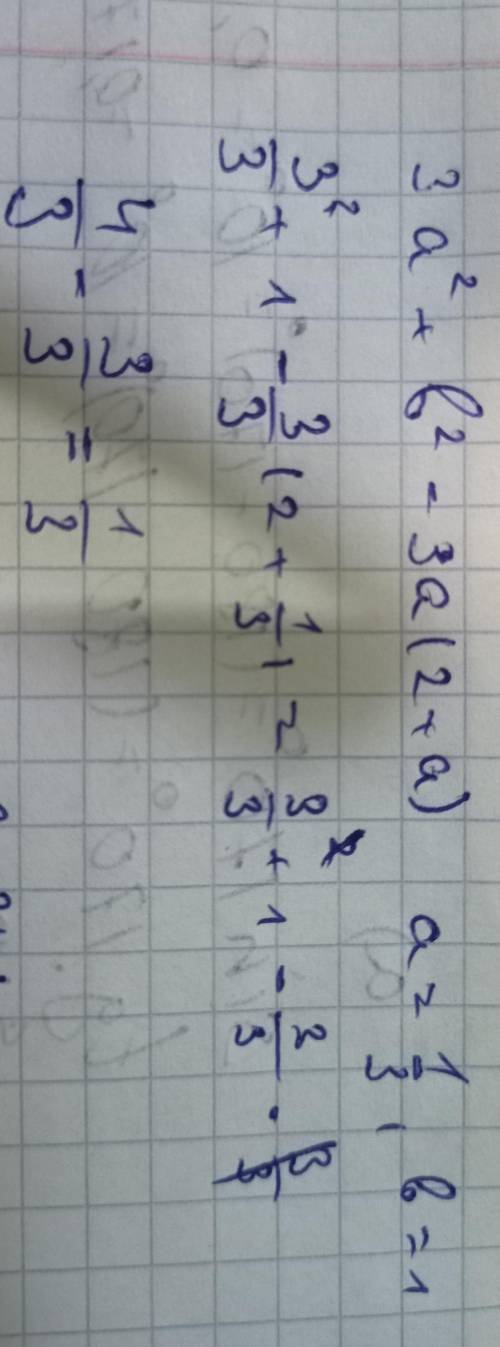 3a² + b² - 3a(2+a) a = 1/3, b = 1
3²/3 + 1 - 3/3 (2 + 1/3) = 9/3 + 1 - 2/3 ·
4/3 - 3/3 = 1/3